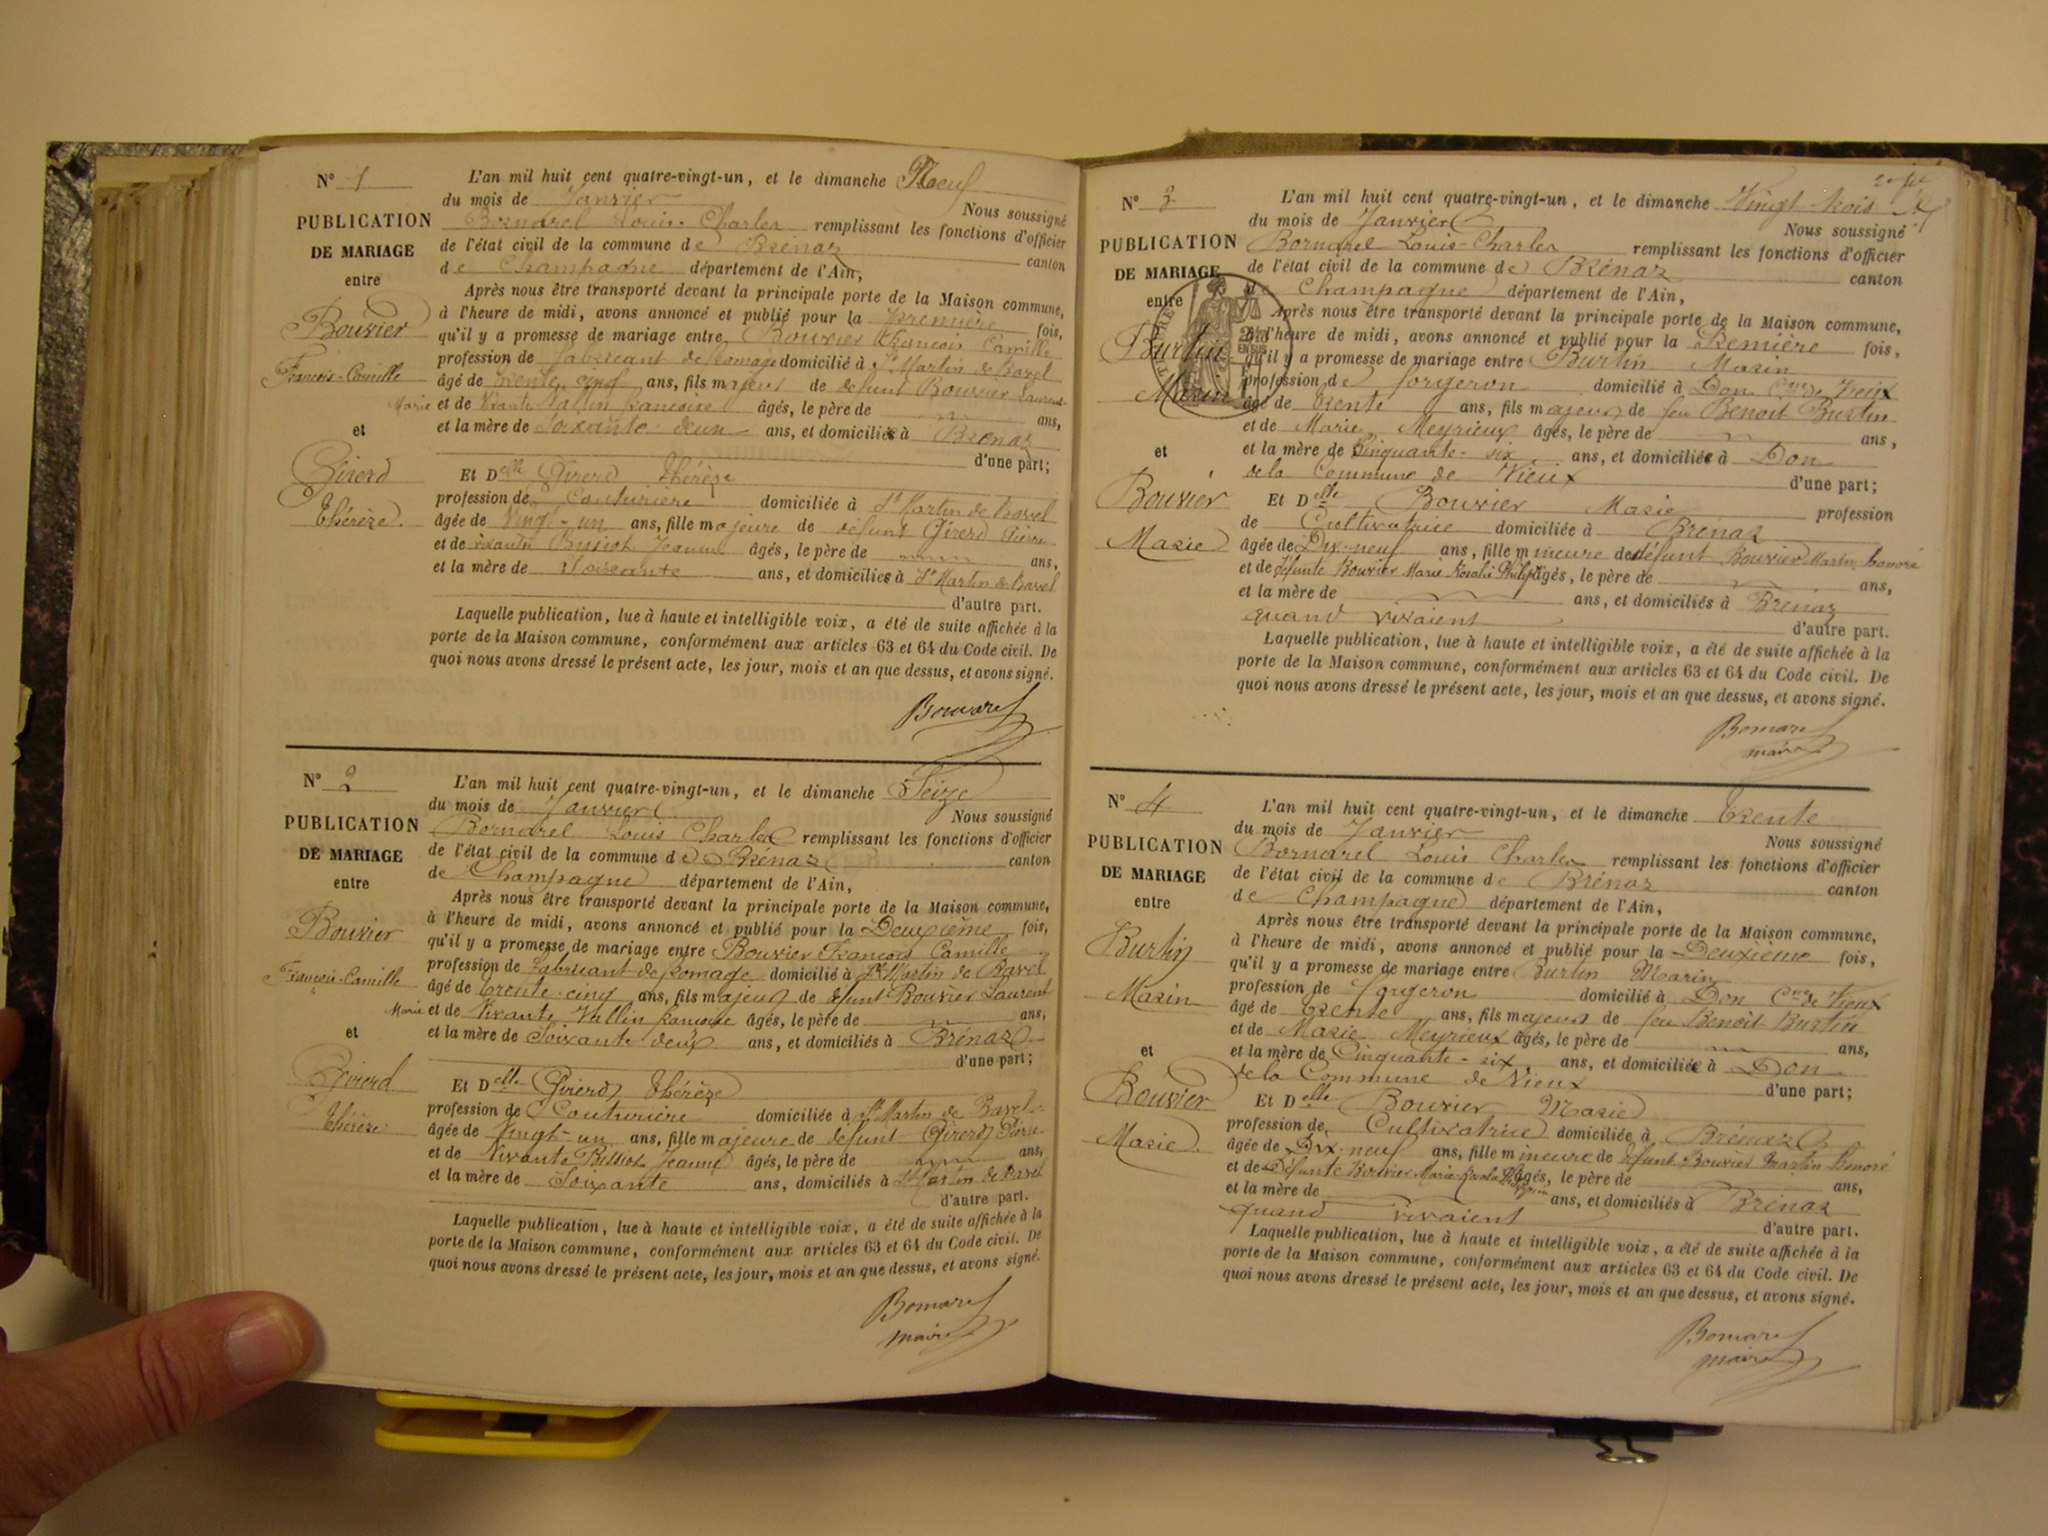 N° 1
PUBLICATION
DE MARIAGE
entre
Bouvier
François-Camille
Marie
et
Girerd
Thérèze.
L'an mil huit cent quatre-vingt-un, et le dimanche Neuf
du mois de Janvier Nous soussigné
Bornarel Louis-Charles remplissant les fonctions d'officier
de l'état civil de la commune de Brénaz canton
de Champagne département de l'Ain,
Après nous être transporté devant la principale porte de la Maison commune,
à l'heure de midi, avons annoncé et publié pour la première fois,
qu'il y a promesse de mariage entre Bouvier François Camille
profession de fabricant de fromage domicilié à St Martin de Bavel
âgé de trente-cinq ans, fils majeur de défunt Bouvier Laurent
et de vivante Vallin françoise âgés, le père de ans,
et la mère de Soixante deux ans, et domiciliés à Brénaz
d'une part;
Et Delle Girerd Thérèze
profession de Couturière domiciliée à St Martin de Bavel
âgée de Vingt-un ans, fille majeure de défunt Girerd Pierre
et de vivante Jeanne âgés, le père de ans,
et la mère de Soixante ans, et domiciliés à St Martin de Bavel
d'autre part.
Laquelle publication, lue à haute et intelligible voix, a été de suite affichée à la
porte de la Maison commune, conformément aux articles 63 et 64 du Code civil. De
quoi nous avons dressé le présent acte, les jour, mois et an que dessus, et avons signé.
Bornarel
N° 2
PUBLICATION
DE MARIAGE
entre
Bouvier
François-Camille
Marie
et
Girerd
Thérèze
L'an mil huit cent quatre-vingt-un, et le dimanche Seize
du mois de Janvier Nous soussigné
Bornarel Louis Charles remplissant les fonctions d'officier
de l'état civil de la commune de Brénaz canton
de Champagne département de l'Ain,
Après nous être transporté devant la principale porte de la Maison commune,
à l'heure de midi, avons annoncé et publié pour la Deuxième fois,
qu'il y a promesse de mariage entre Bouvier François Camille
profession de fabricant de fromage domicilié à St Martin de Bavel
âgé de trente-cinq ans, fils majeur de défunt Bouvier Laurent
et de Vivante Vallin françoise âgés, le père de ans,
et la mère de Soixante deux ans, et domiciliés à Brénaz
d'une part;
Et Delle Girerd Thérèze
profession de Couturière domiciliée à St Martin de Bavel
âgée de Vingt-un ans, fille majeure de défunt Girerd Pierre
et de Vivante Jeanne âgés, le père de ans,
et la mère de Soixante ans, domiciliés à St Martin de Bavel
d'autre part.
Laquelle publication, lue à haute et intelligible voix, a été de suite affichée à la
porte de la Maison commune, conformément aux articles 63 et 64 du Code civil. De
quoi nous avons dressé le présent acte, les jour, mois et an que dessus, et avons signé.
Bornarel
maire
N° 3
PUBLICATION
DE MARIAGE
entre
Burtin
Marin
et
Bouvier
Marie
L'an mil huit cent quatre-vingt-un, et le dimanche Vingt trois
du mois de Janvier Nous soussigné
Bornarel Louis-Charles remplissant les fonctions d'officier
de l'état civil de la commune de Brénaz canton
de Champagne département de l'Ain,
Après nous être transporté devant la principale porte de la Maison commune,
à l'heure de midi, avons annoncé et publié pour la Première fois,
qu'il y a promesse de mariage entre Burtin Marin
profession de forgeron domicilié à Don Cne de Vieux
âgé de trente ans, fils majeur de feu Benoit Burtin
et de Marie Meyrieux âgés, le père de ans,
et la mère de Cinquante-six ans, et domiciliés à Don
de la Commune de Vieux d'une part;
Et Delle Bouvier Marie profession
de Cultivatrice domiciliée à Brénaz
âgée de Dix-neuf ans, fille mineure de défunt Bouvier Martin honoré
et de défunte Bouvier Marie Rosalie âgés, le père de ans,
et la mère de ans, et domiciliés à Brénaz
quand vivaient d'autre part.
Laquelle publication, lue à haute et intelligible voix, a été de suite affichée à la
porte de la Maison commune, conformément aux articles 63 et 64 du Code civil. De
quoi nous avons dressé le présent acte, les jour, mois et an que dessus, et avons signé.
Bornarel
maire
N° 4
PUBLICATION
DE MARIAGE
entre
Burtin
Marin
et
Bouvier
Marie.
L'an mil huit cent quatre-vingt-un, et le dimanche trente
du mois de Janvier Nous soussigné
Bornarel Louis Charles remplissant les fonctions d'officier
de l'état civil de la commune de Brénaz canton
de Champagne département de l'Ain,
Après nous être transporté devant la principale porte de la Maison commune,
à l'heure de midi, avons annoncé et publié pour la Deuxième fois,
qu'il y a promesse de mariage entre Burtin Marin
profession de forgeron domicilié à Don Cne de Vieux
âgé de trente ans, fils majeur de feu Benoit Burtin
et de Marie Meyrieux âgés, le père de ans,
et la mère de Cinquante-six ans, et domiciliés à Don
de la Commune de Vieux d'une part;
Et Delle Bouvier Marie
profession de Cultivatrice domiciliée à Brénaz
âgée de Dix-neuf ans, fille mineure de défunt Bouvier Martin honoré
et de défunte Bouvier Marie Rosalie âgés, le père de ans,
et la mère de ans, et domiciliés à Brénaz
quand vivaient d'autre part.
Laquelle publication, lue à haute et intelligible voix, a été de suite affichée à la
porte de la Maison commune, conformément aux articles 63 et 64 du Code civil. De
quoi nous avons dressé le présent acte, les jour, mois et an que dessus, et avons signé.
Bornarel
maire